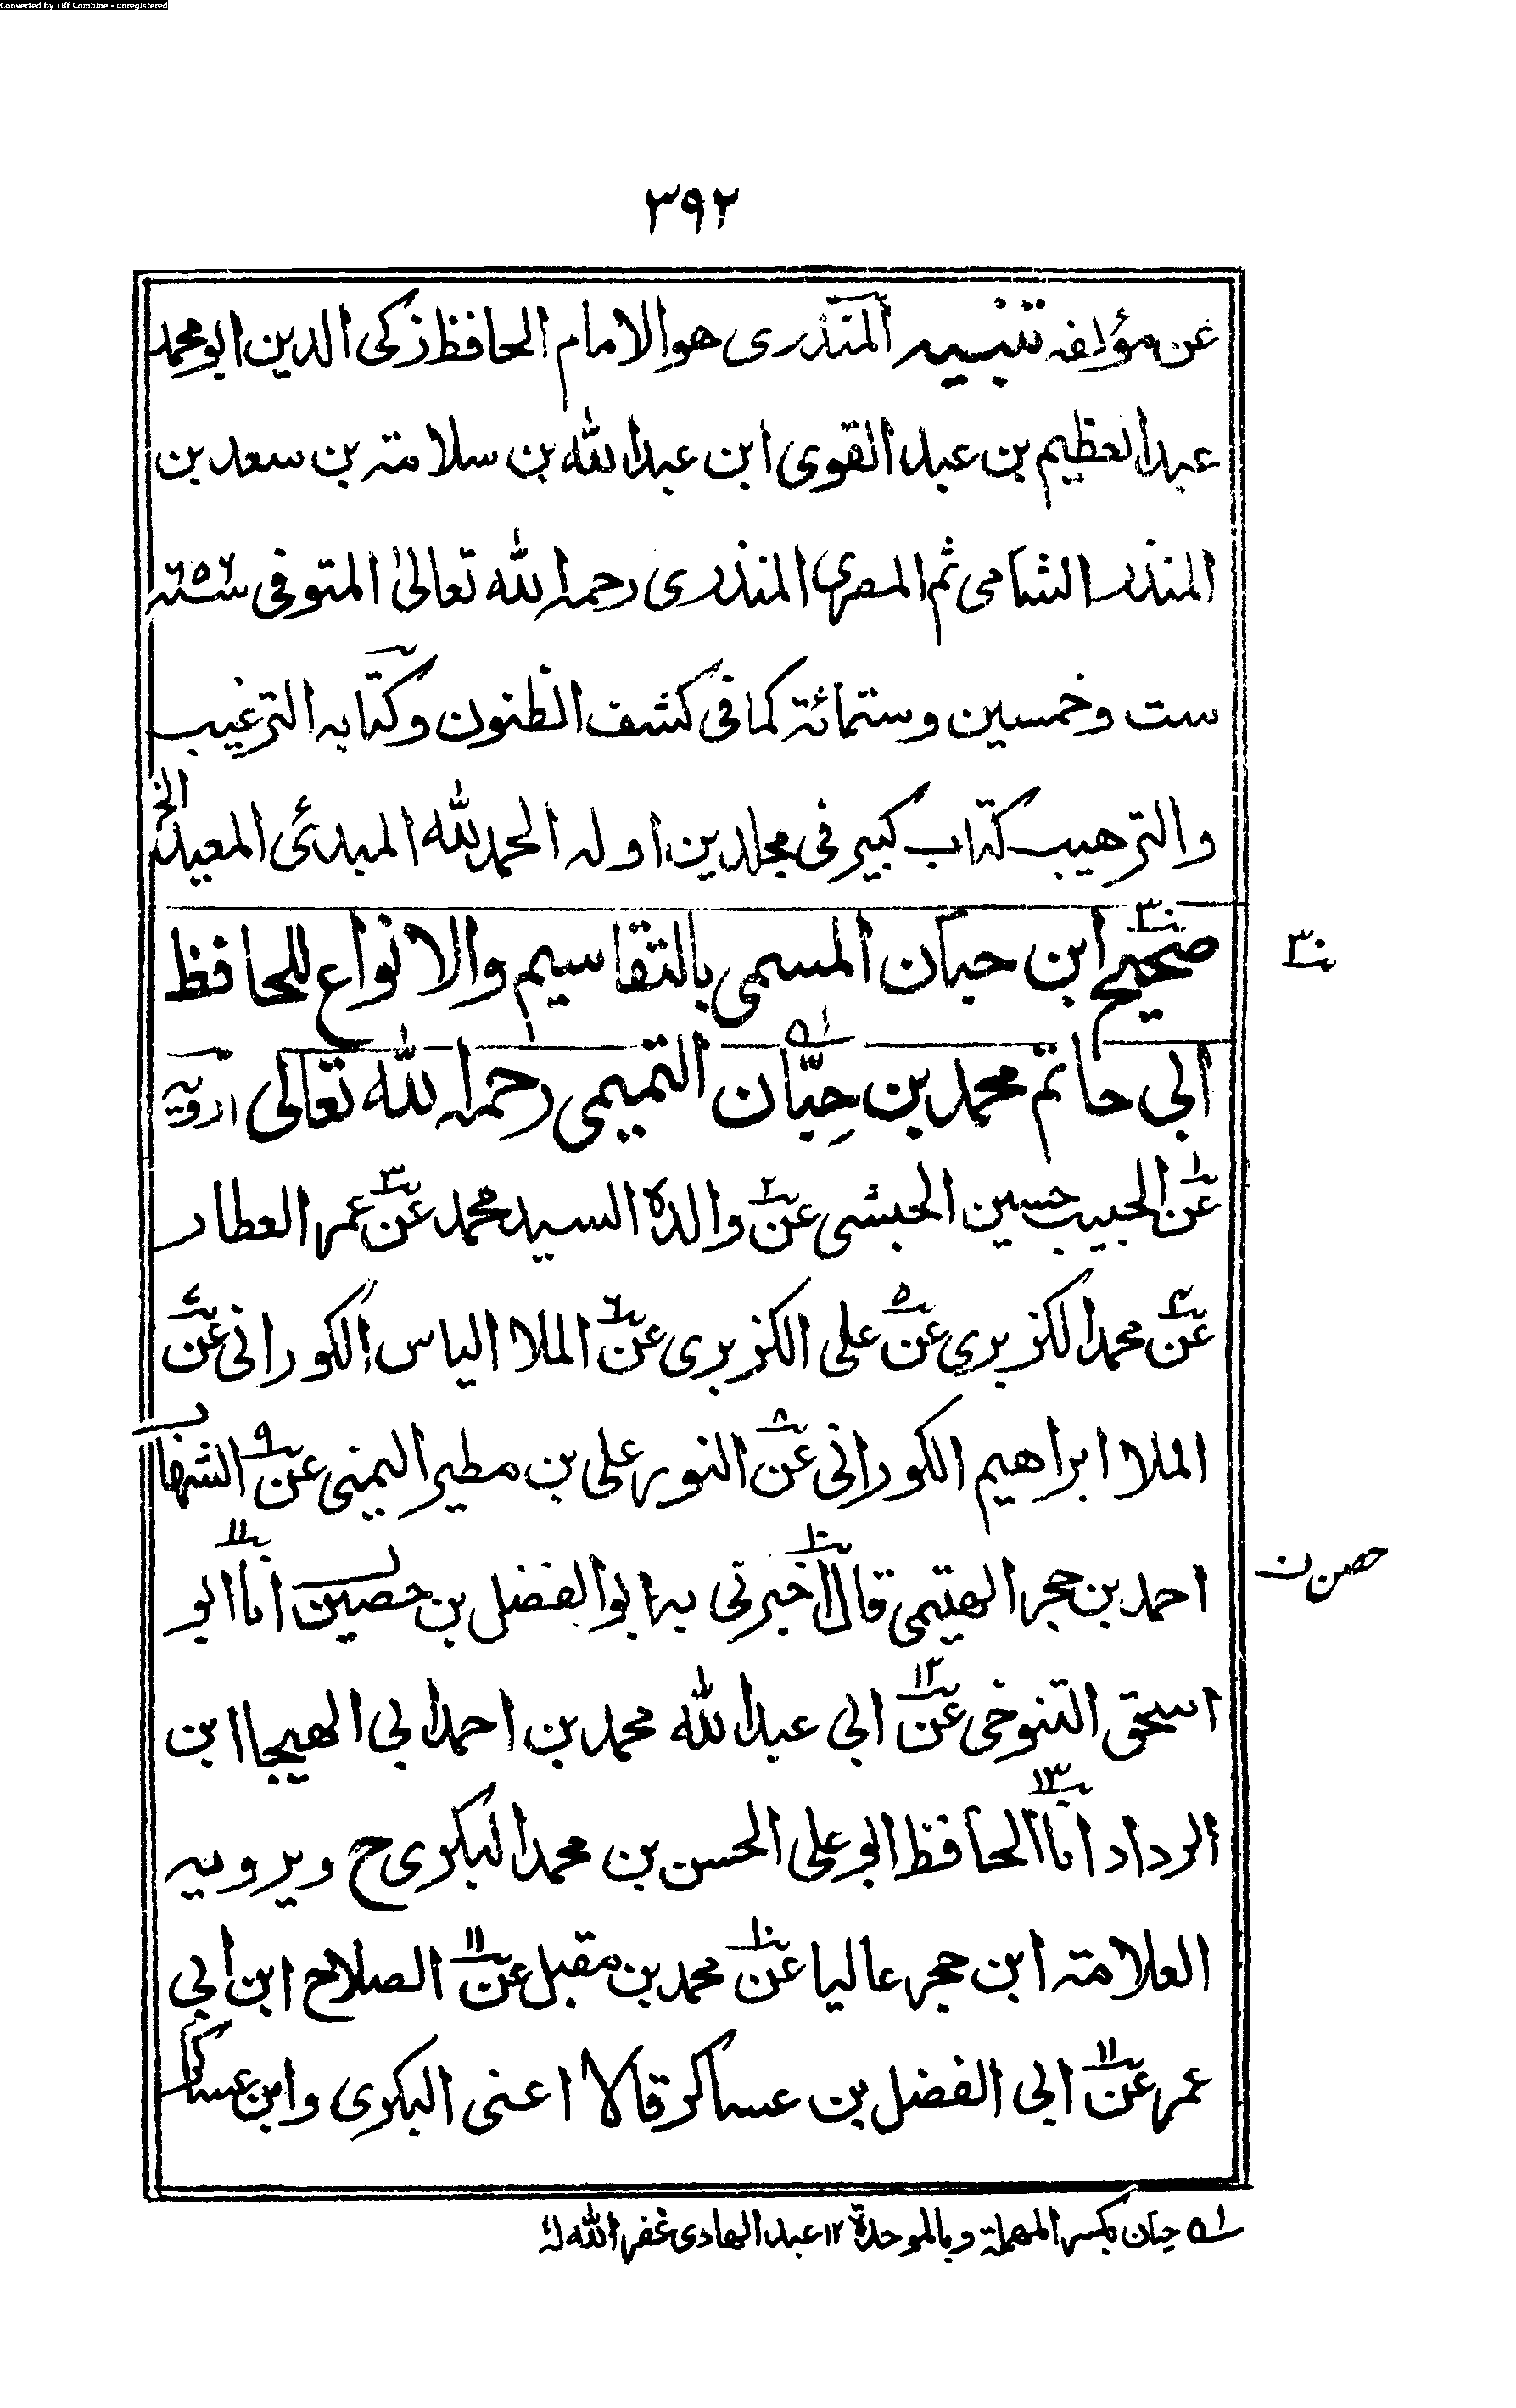 Converted by Tiff Combine - unregistered
٣٩٢
عن مؤلفه تنبيه المنذري هو الامام الحافظ زكى الدين ابو محمد
عبد العظيم بن عبد القوى ابن عبد الله بن سلامة بن سعد بن
المنذر الشامى ثم المصرى المنذرى رحمه الله تعالىٰ المتوفى سنة ٦٥٦
ست وخمسين وستمائة كما فى كشف الظنون وكتابه الترغيب
والترهيب كتاب كبير فى مجلدين اوله الحمد لله المبدئ المعيد الخ
صحيح ابن حبان المسمى بالتقاسيم والانواع للحافظ
٣٠
ابى حاتم محمد بن حِبّان التميمى رحمه الله تعالى ارويه
عن ١ الحبيب حسين الحبشى عن ٢ والده السيد محمد عن ٣ عمر العطار
عن ٤ محمد الكزبري عن ٥ على الكزبرى عن ٦ الملا الياس الكورانى عن ٧
الملا ابراهيم الكورانى عن ٨ النور على بن مطير اليمنى عن ٩ الشهاب
احمد بن حجر الهيتمى قال اخبرنى ١٠ به ابو الفضل بن حصين انا ١١ ابو
حصن ن
اسحق التنوخى عن ١٢ ابى عبد الله محمد بن احمد ابى الهيجا ابن
الرداد انا ١٣ الحافظ ابو على الحسن بن محمد البكرى ح ويرويه
العلامة ابن حجر عاليا عن ١٠ محمد بن مقبل عن ١١ الصلاح ابن ابى
عمر عن ١٢ ابى الفضل بن عساكر قالا اعنى البكرى وابن عساكر
١ه حبان بكسر المهملة وبالموحدة ١٢ عبد الهادى غفر الله له